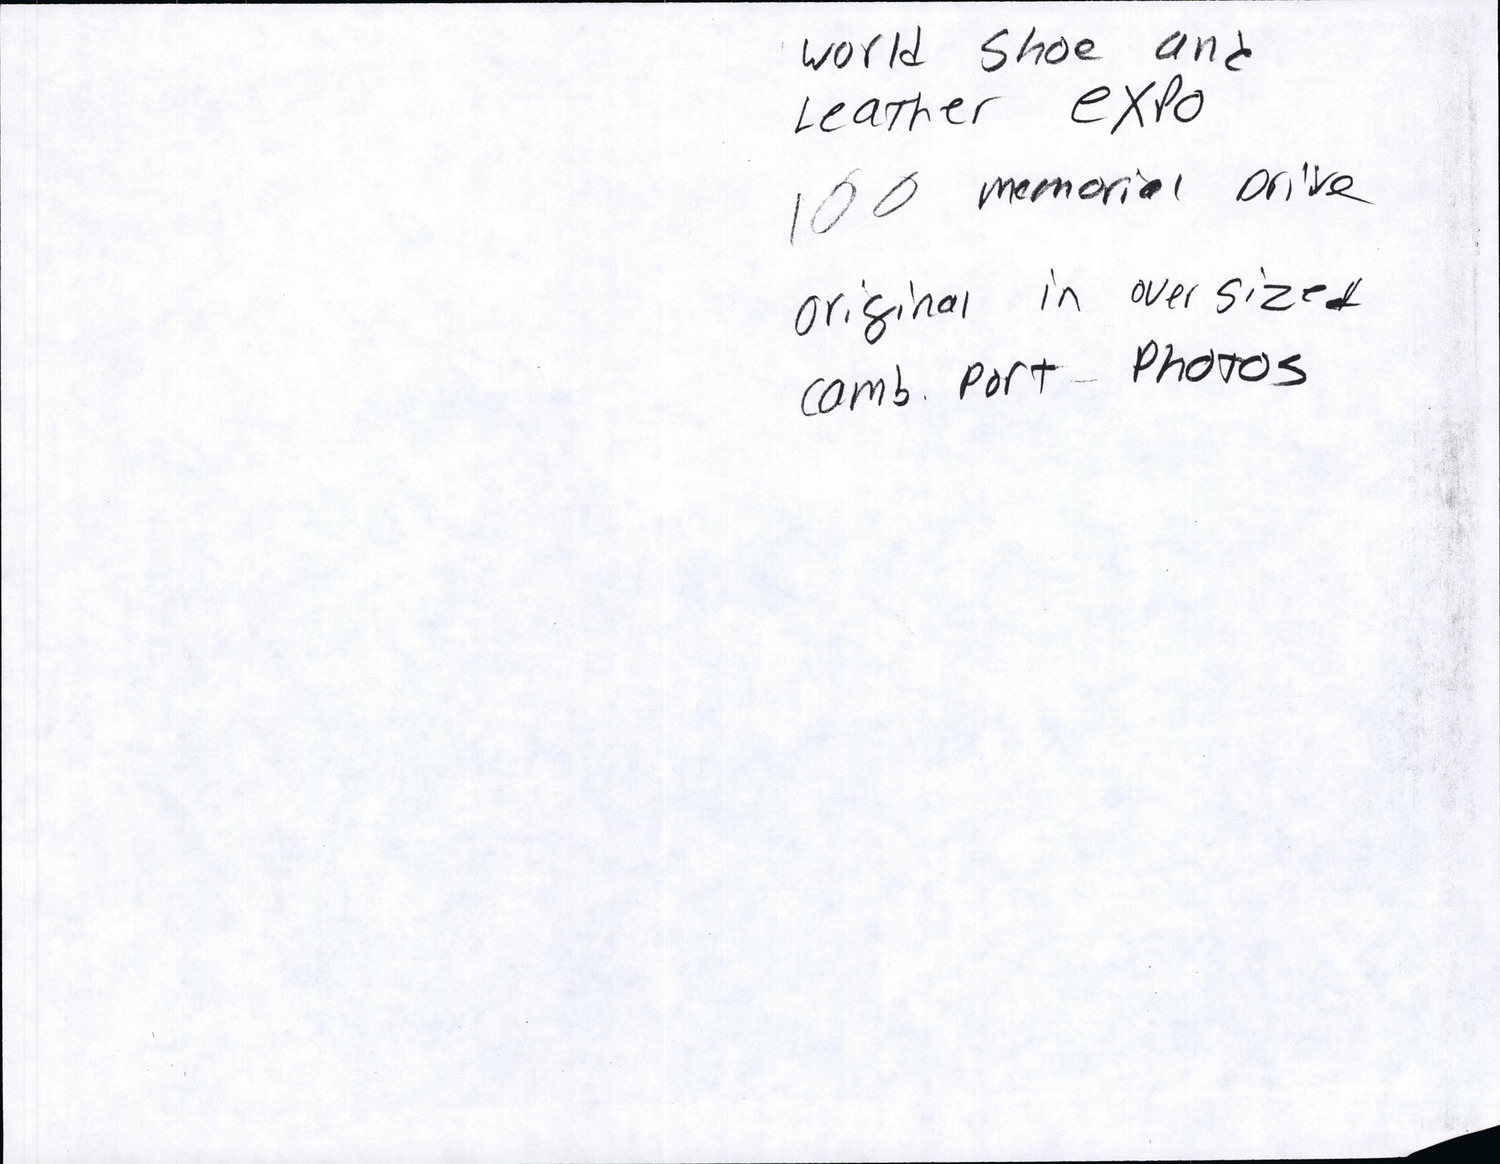 world shoe and
Leather expo
100 memorial Drive
original in oversized
camb. Port Photos